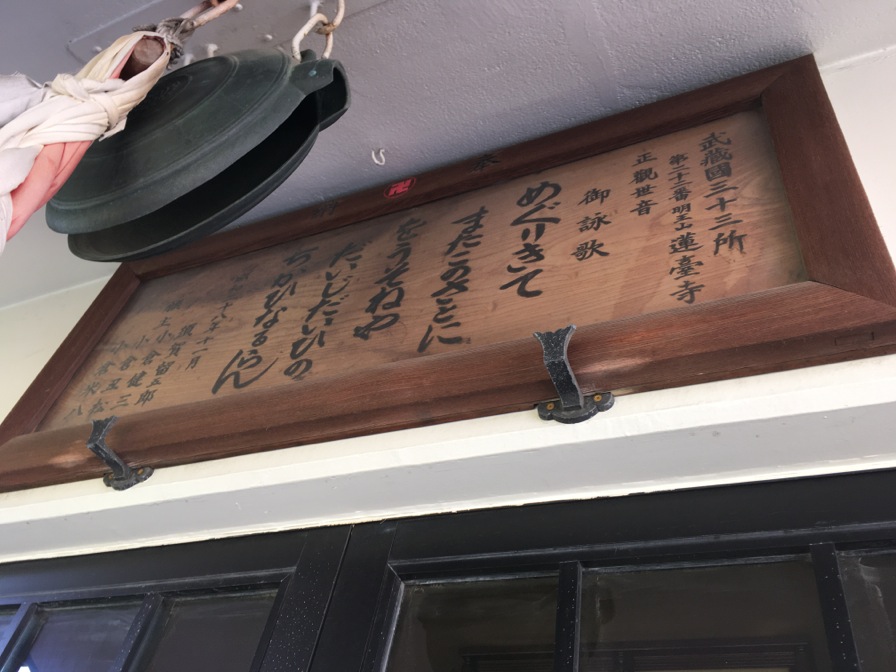 奉 卍 納
武藏國三十三所
第二十二番明王山蓮臺寺
正觀世音
御詠歌
めぐりきて
またこのさとに
とうそねや
だいじだいひの
ちかひなるらん
十八年十一月
願主 須賀留五郎
小倉健三